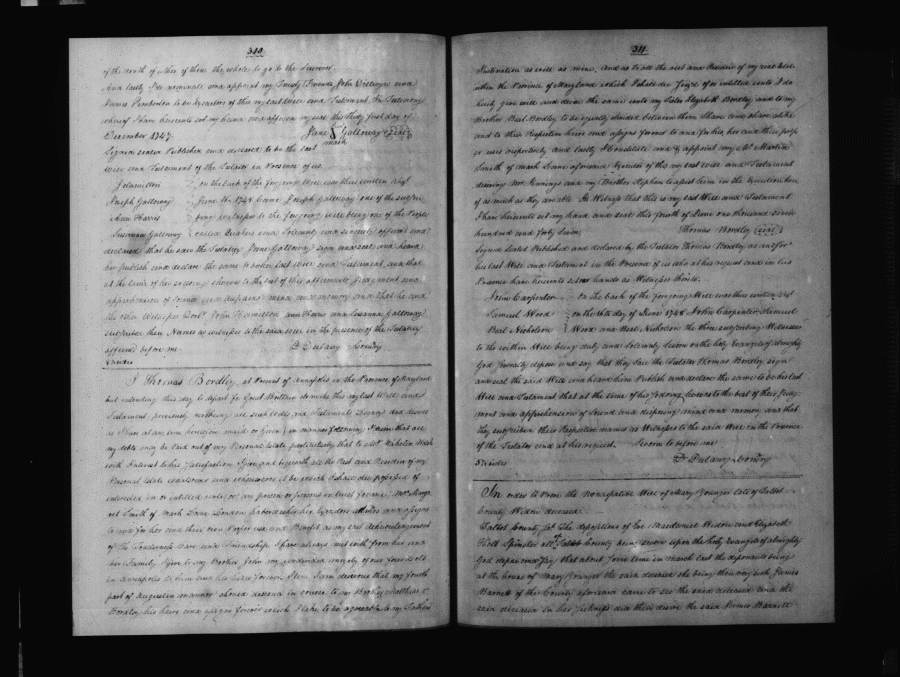 310
of the death of either of them the whole to go to the Survivor
And lastly I do nominate and appoint my Trusty Friends John and
James Pemberton to be Executors of this my last Will and Testament In Testimony
whereof I have hereunto set my hand and affixed my seal this first day of
December 1747.
Jane Galloway Seal
mark
Signed sealed Published and declared to be the last
Will and Testament of the Testator in Presence of us
J Hamilton On the back of the foregoing Will was thus written Vizt
Joseph Galloway June 1748 Came Joseph Galloway one of the subscri
Ann Harris bing witnesses to the foregoing will being one of the People
Susannah Galloway called Quakers and solemnly and sincerely affirmed and
declared that he saw the Testatrix Jane Galloway sign and seal and heard
her publish and declare the same to be her last Will and Testament, and that
at the time of her so doing she was to the best of this affirmants Judgement and
apprehension of sound and disposing mind and memory and that he and
the other Witnesses Doctr John Hamilton Ann Harris and Susanna Galloway
subscribed their Names as witnesses to the said will in the presence of the Testatrix
affirmd before me
D Dulany Comry
I Thomas Bordley, at Present of Annapolis in the Province of Maryland
but intending this day to depart for Great Brittain do make this my last Will and
Testament, previously revoking all such Wills and Testaments Legacys and devises
as I have at any time heretofore made or given in manner following I desire that all
my debts may be Paid out of my Personal Estate particularly that to Mr
with Interest to his Satisfaction I give and bequeath all the Rest and Residue of my
Personal Estate whatsoever and wheresoever it be which I shall die possessed of
interested in or intitled unto or any person or persons in trust for me, Mrs Marga
ret Smith of Mark Lane London haberdasher her Executors admrs and assigns
to and for her and their own Proper use and Benefit as my best acknowledgement
of the Tenderness Care and Friendship I have always met with from her and
her Family I give to my Brother John my
in Annapolis to him and his heirs forever Item I am desirous that my fourth
part of Augustin mannor should descend in course to my Brother Matthias
Bordley his heirs and assigns forever which I take to be agreeable to my Father's
311
Inclination as well as mine. And as to all the rest and Residue of my real Estate
within the Province of Maryland which I shall die Seized of or intitled unto I do
hereby give will and devise the same unto my Sister Elizabeth Bordley and to my
Brother Beal Bordley to be equally divided between them Share and share alike
and to their Respective heirs and assigns forever to and for his, her and their prop
er uses respectively and lastly I Constitute and appoint my Mr
Smith of mark Lane aforesaid Executor of this my last will and Testament
desiring Mr Jennings and my Brother Stephen to assist him in the Execution here
of as much as they are able In Witness that this is my last Will and Testament
I have hereunto set my hand and seal this fourth of June one thousand seven
hundred and forty seven Thomas Bordley Seal
Signed Sealed Published and declared by the Testator Thomas Bordley as and for
his last Will and Testament in the Presence of us who at his request and in his
Presence have hereunto set our hands as Witnesses thereto.
John Carpenter On the back of the foregoing Will was thus written Vizt
Samuel Wood on the 16th day of June 1748 John Carpenter Samuel
Beal Nicholson Wood and Beal Nicholson the three subscribing Witnesses
to the within Will being duly and solemnly Sworn on the holy Evangels of Almighty
God severally depose and say that they saw the Testator Thomas Bordley sign
and seal the said Will and heard him Publish and declare the same to be his last
Will and Testament that at the time of his so doing he was to the best of their Judg
ment and apprehension of Sound and disposing mind and memory and that
they subscribed their Respective names as Witnesses to the said Will in the Presence
of the Testator and at his request. Sworn to before me
D Dulany Comry
In order to Prove the Noncupative Will of Mary Younger late of Talbot
County Widow deceased
Talbot County Sct The depositions of Eve Macdaniel Widow and Elizabeth
Spinster all of Talbot County being sworn upon the Holy Evangels of almighty
God depose and Say that about some time in march last the deponents being
at the house of Mary Younger the said deceased she being then very sick James
Barnett of this County aforesaid came to see the said deceased and the
said deceased in her sickness did then desire the said James Barnett